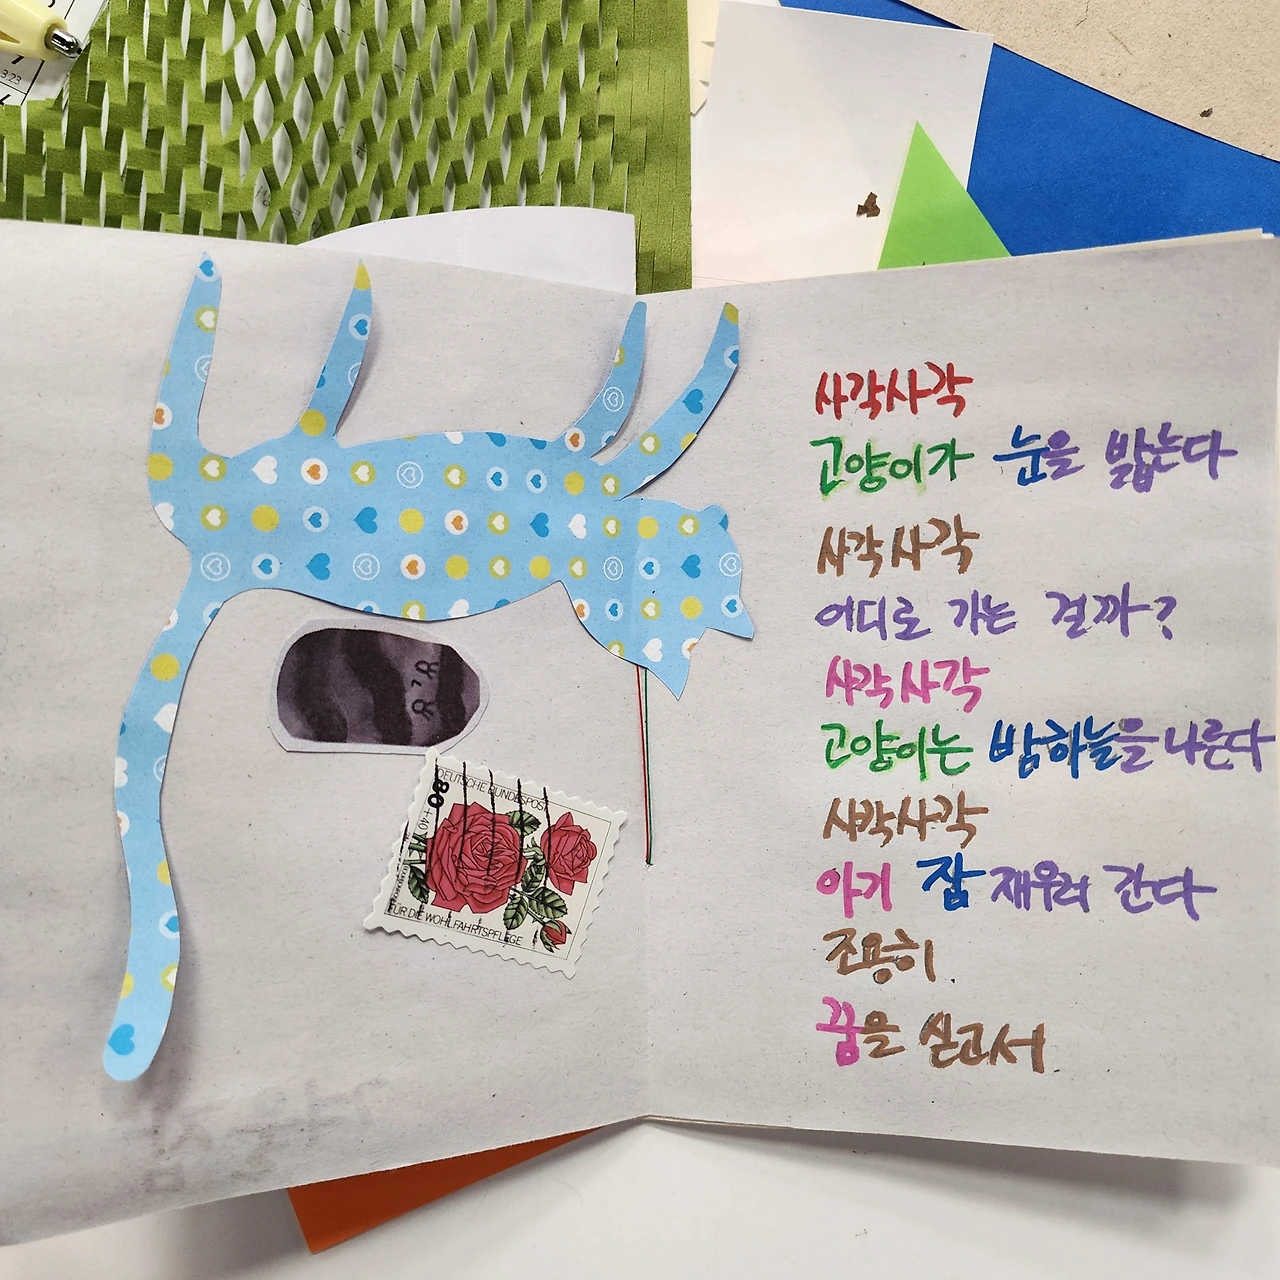 사각사각
고양이가 눈을 밟는다
사각사각
어디로 가는 걸까?
사각사각
고양이는 밤하늘을 나른다
사각사각
아기 잠 재우러 간다
조용히
꿈을 싣고서
DEUTSCHE BUNDESPOST
80
+40
FÜR DIE WOHLFAHRTSPFLEGE
3.23